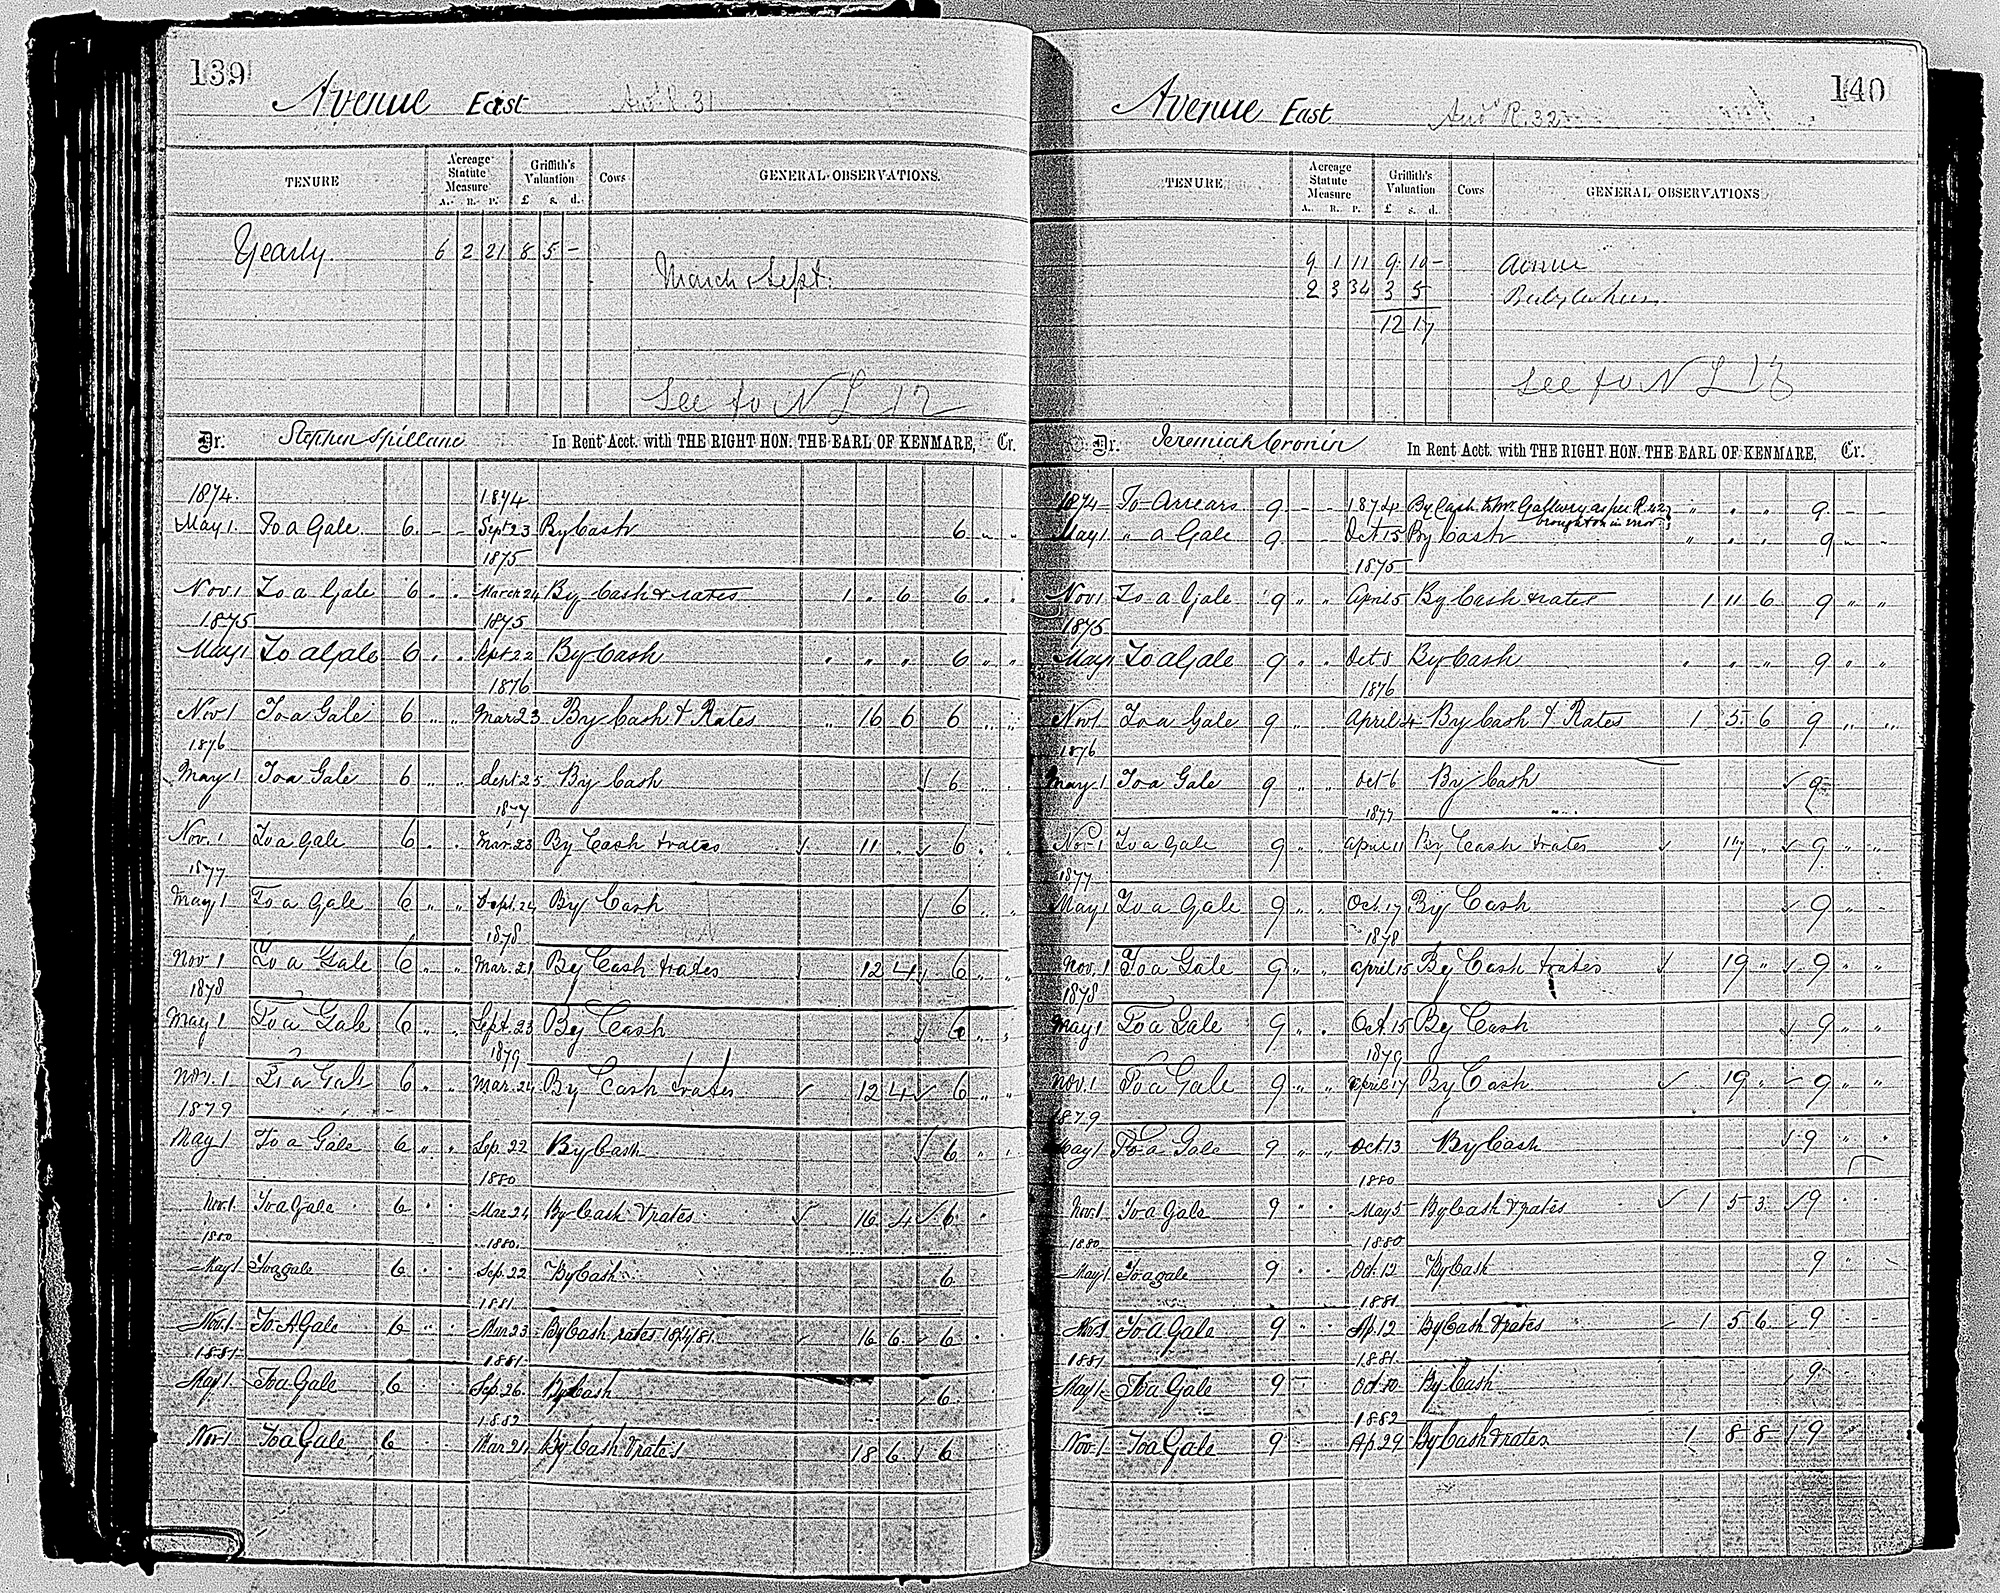 139
Avenue East
TENURE
Acreage Statute Measure
A. R. P.
Griffith's Valuation
£ s. d.
Cows
GENERAL OBSERVATIONS.
Yearly 6 2 21 8 5 –
March & Sept.
See to N L 12
Dr. Stephen Spillane In Rent Acct. with THE RIGHT HON. THE EARL OF KENMARE, Cr.
1874 1874
May 1. To a Gale. 6 - - Sept 23 By Cash 6 " "
1875
Nov. 1 To a Gale 6 " " March 24 By Cash & rates 1 " 6 6 " "
1875 1875
May 1 To a Gale 6 " " Sept. 22 By Cash " " " 6 " "
1876
Nov 1 To a Gale 6 " " Mar 23 By Cash & Rates " 16 6 6 " "
1876
May 1 To a Gale 6 " " Sept. 25 By Cash ✓ 6 " "
1877
Nov. 1 To a Gale 6 " " Mar. 23 By Cash & rates ✓ 11 " ✓ 6 " "
1877
May 1 To a Gale 6 " " Sept. 24 By Cash ✓ 6 " "
1878
Nov 1 To a Gale 6 " " Mar. 21 By Cash & rates 12 4 ✓ 6 " "
1878
May 1 To a Gale 6 " " Sept. 23 By Cash ✓ 6 " "
1879
Nov. 1 To a Gale 6 " " Mar. 24 By Cash & rates ✓ 12 4 ✓ 6 " "
1879
May 1 To a Gale 6 " " Sep. 22 By Cash ✓ 6 " "
1880
Nov. 1 To a Gale 6 " " Mar 24 By Cash & rates ✓ 16 4 ✓ 6 "
1880 1880
May 1 To a gale 6 " " Sep. 22 By Cash 6
1881
Nov. 1 To A Gale 6 " " Mar. 23 By Cash, rates 18/4/81 ✓ 16 6 ✓ 6 "
1881 1881
May 1. To a Gale 6 " " Sep. 26 By Cash 6
1882
Nov 1 To a Gale 6 " " Mar. 21 By Cash & rates 18 6 ✓ 6
140
Avenue East
TENURE
Acreage Statute Measure
A. R. P.
Griffith's Valuation
£ s. d.
Cows
GENERAL OBSERVATIONS
9 1 11 9 10 – Avenue
2 3 34 3 5
12 17
See to N L 13
Dr. Jeremiah Cronin In Rent Acct. with THE RIGHT HON. THE EARL OF KENMARE, Cr.
1874 To Arrears 9 - - 1874 By Cash to Mr Gallwey as per R. 42 " " " 9 - -
brought on in error
May 1. " a Gale 9 - - Oct 15 By Cash " " " 9 " "
1875
Nov 1 To a Gale 9 " " April 5 By Cash & rates 1 11 6 9 " "
1875
May 1 To a Gale 9 " " Oct 8 By Cash " " " 9 " "
1876
Nov 1 To a Gale 9 " " April 4 By Cash & Rates 1 5 6 9 " "
1876
May 1 To a Gale 9 " " Oct 6 By Cash ✓ 9
1877
Nov. 1 To a Gale 9 " " April 11 By Cash & rates ✓ 17 " ✓ 9 " "
1877
May 1 To a Gale 9 " " Oct. 17 By Cash ✓ 9 " "
1878
Nov. 1 To a Gale 9 " " April 15 By Cash & rates ✓ 19 " ✓ 9 " "
1878
May 1 To a Gale 9 " " Oct. 15 By Cash ✓ 9 " "
1879
Nov. 1 To a Gale 9 " " April 17 By Cash ✓ 19 " ✓ 9 " "
1879
May 1 To a Gale 9 " " Oct. 13 By Cash ✓ 9 " "
1880
Nov. 1 To a Gale 9 " " May 5 By Cash & rates ✓ 1 5 3 ✓ 9 " "
1880 1880
May 1 To a gale 9 " " Oct. 12 By Cash 9 " "
1881
Nov 1 To A Gale 9 " " Ap. 12 By Cash & rates ✓ 1 5 6 ✓ 9 " "
1881 1881
May 1. To a Gale 9 " " Oct 10 By Cash 9
1882
Nov. 1 To a Gale 9 " " Ap. 29 By Cash & rates 1 8 8 ✓ 9